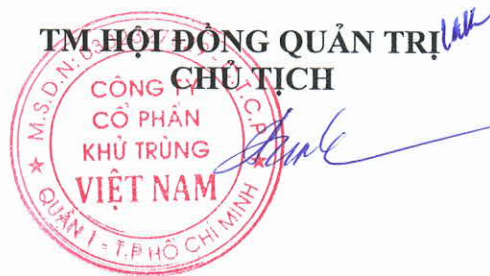 TM HỘI ĐỒNG QUẢN TRỊ
CHỦ TỊCH
CÔNG TY
CỔ PHẦN
KHỬ TRÙNG
VIỆT NAM
QUẬN 1 - T.P HỒ CHÍ MINH